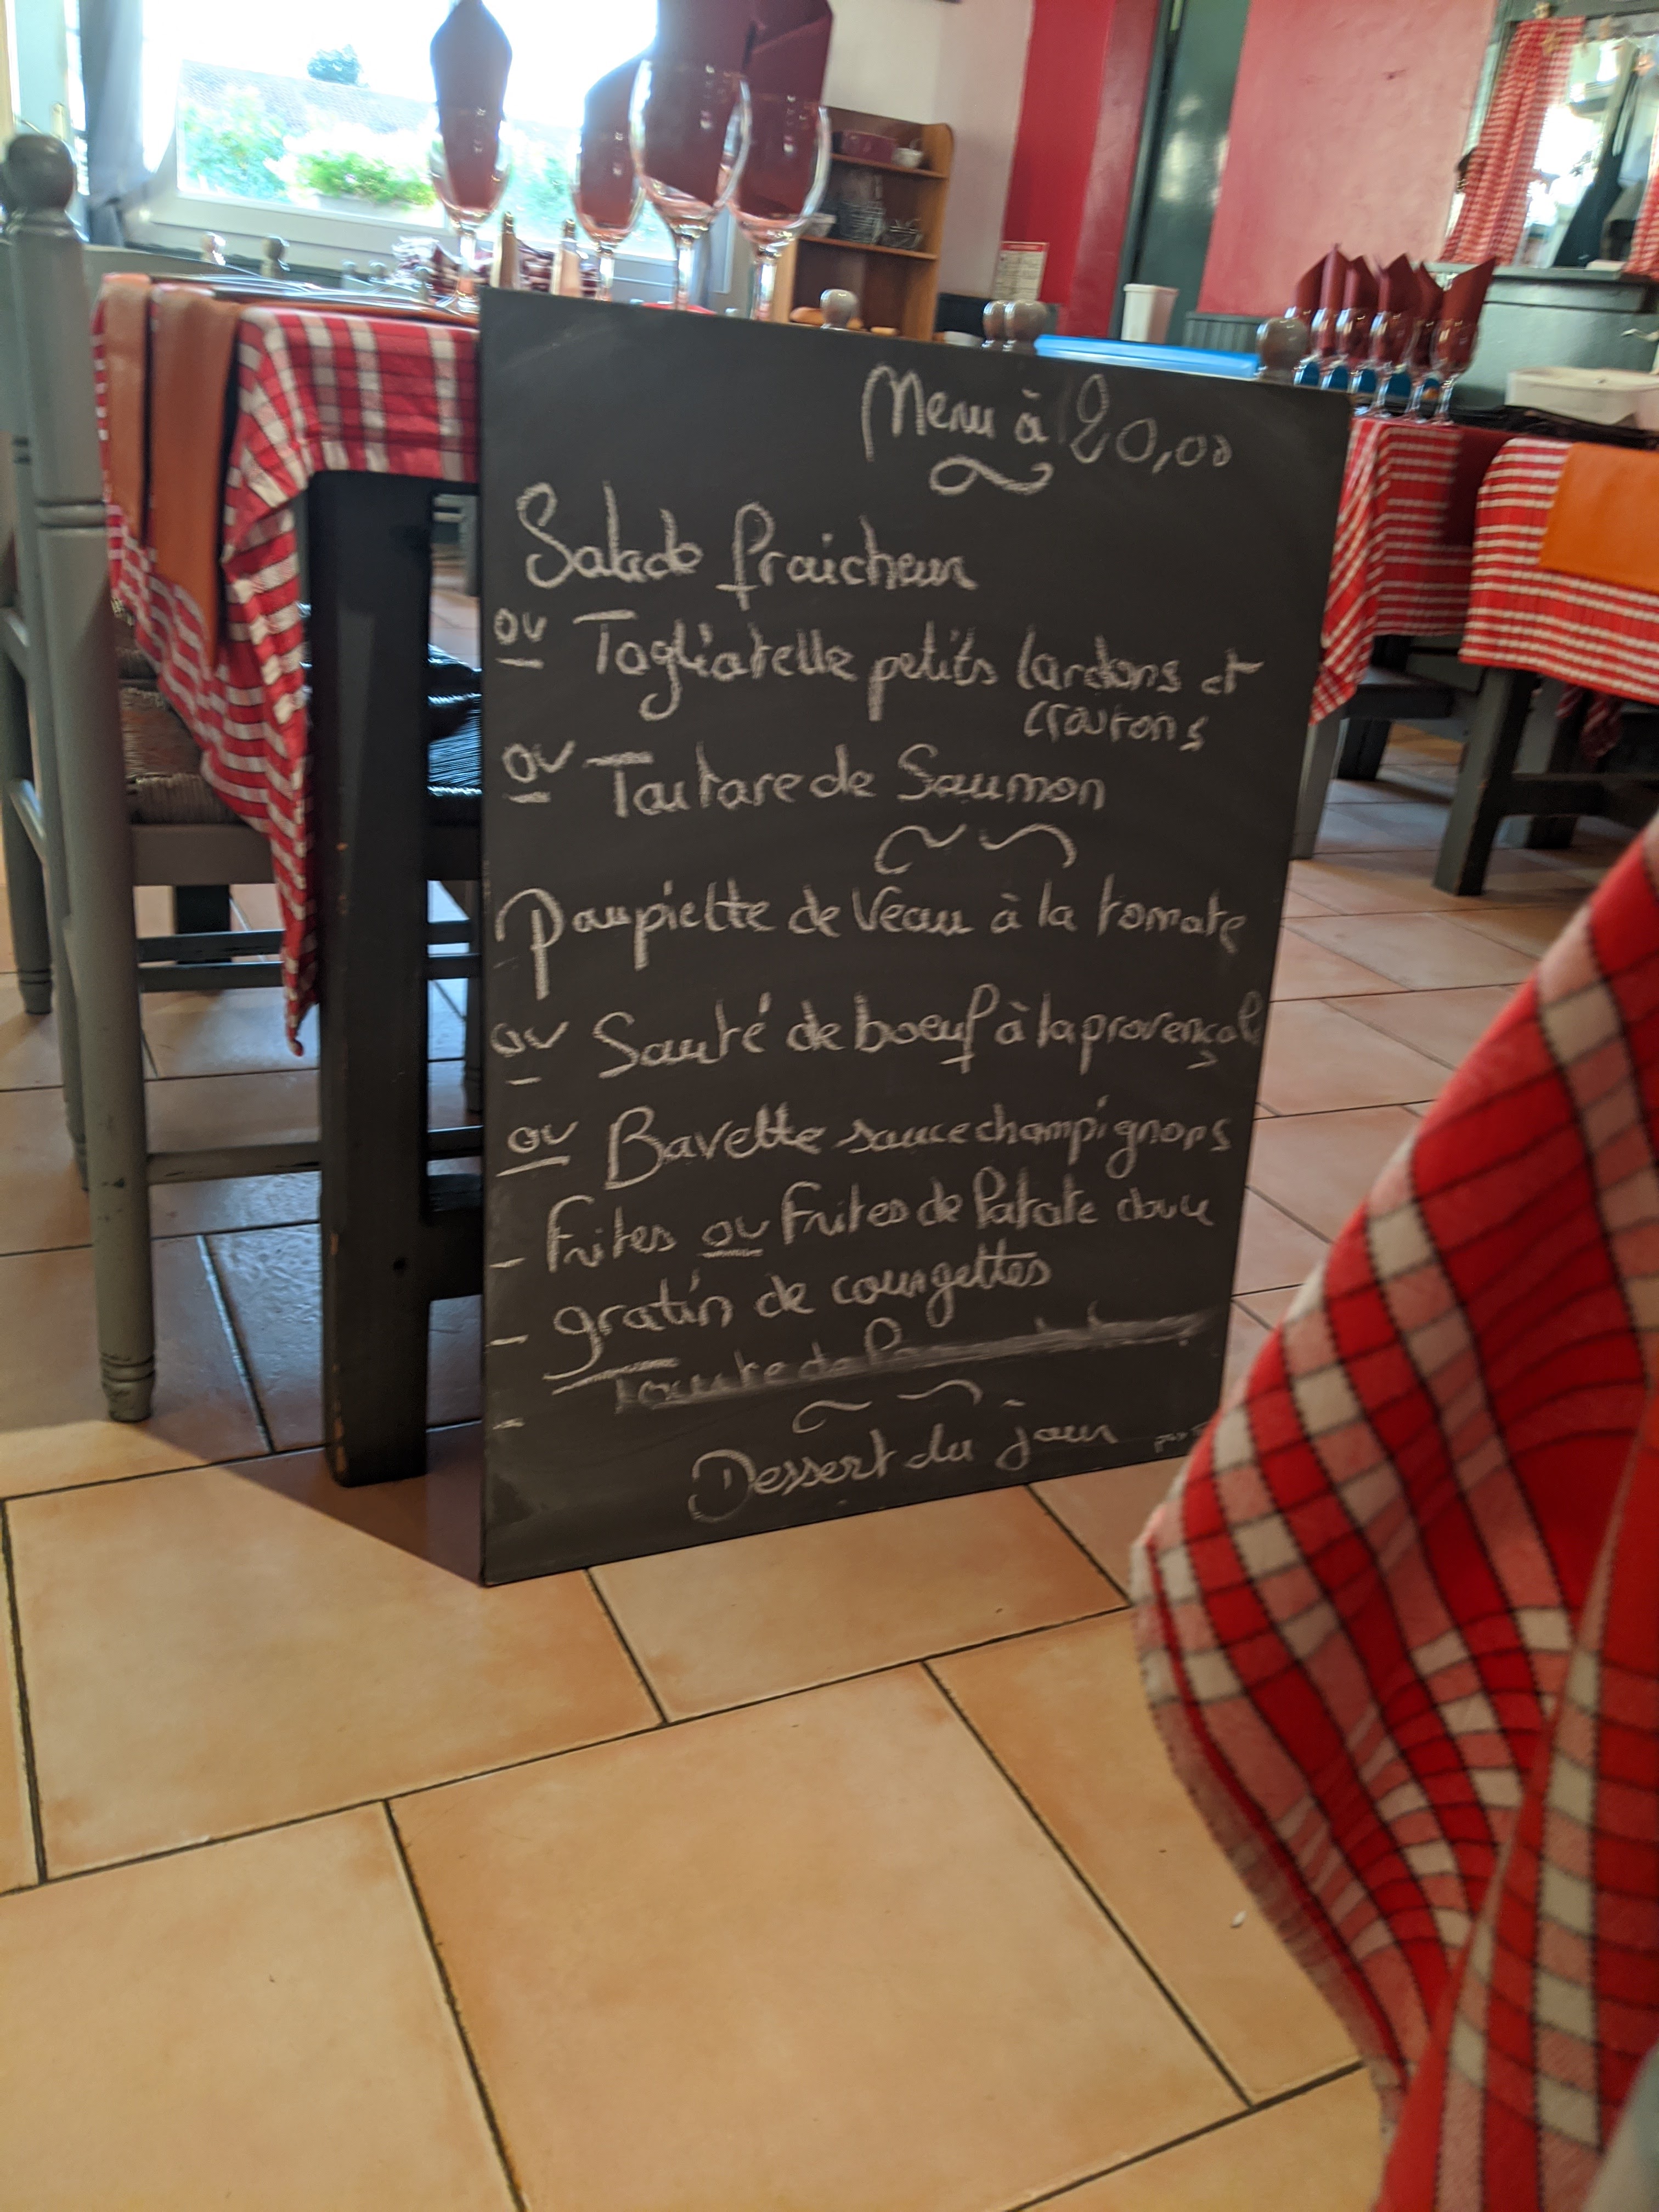 Menu à 20,00
Salade fraicheur
ou Tagliatelle petits lardons et
croutons
ou Tartare de Saumon
Paupiette de Veau à la tomate
ou Sauté de boeuf à la provençal
ou Bavette sauce champignons
- Frites ou Frites de Patate douce
- gratin de courgettes
-
Dessert du jour